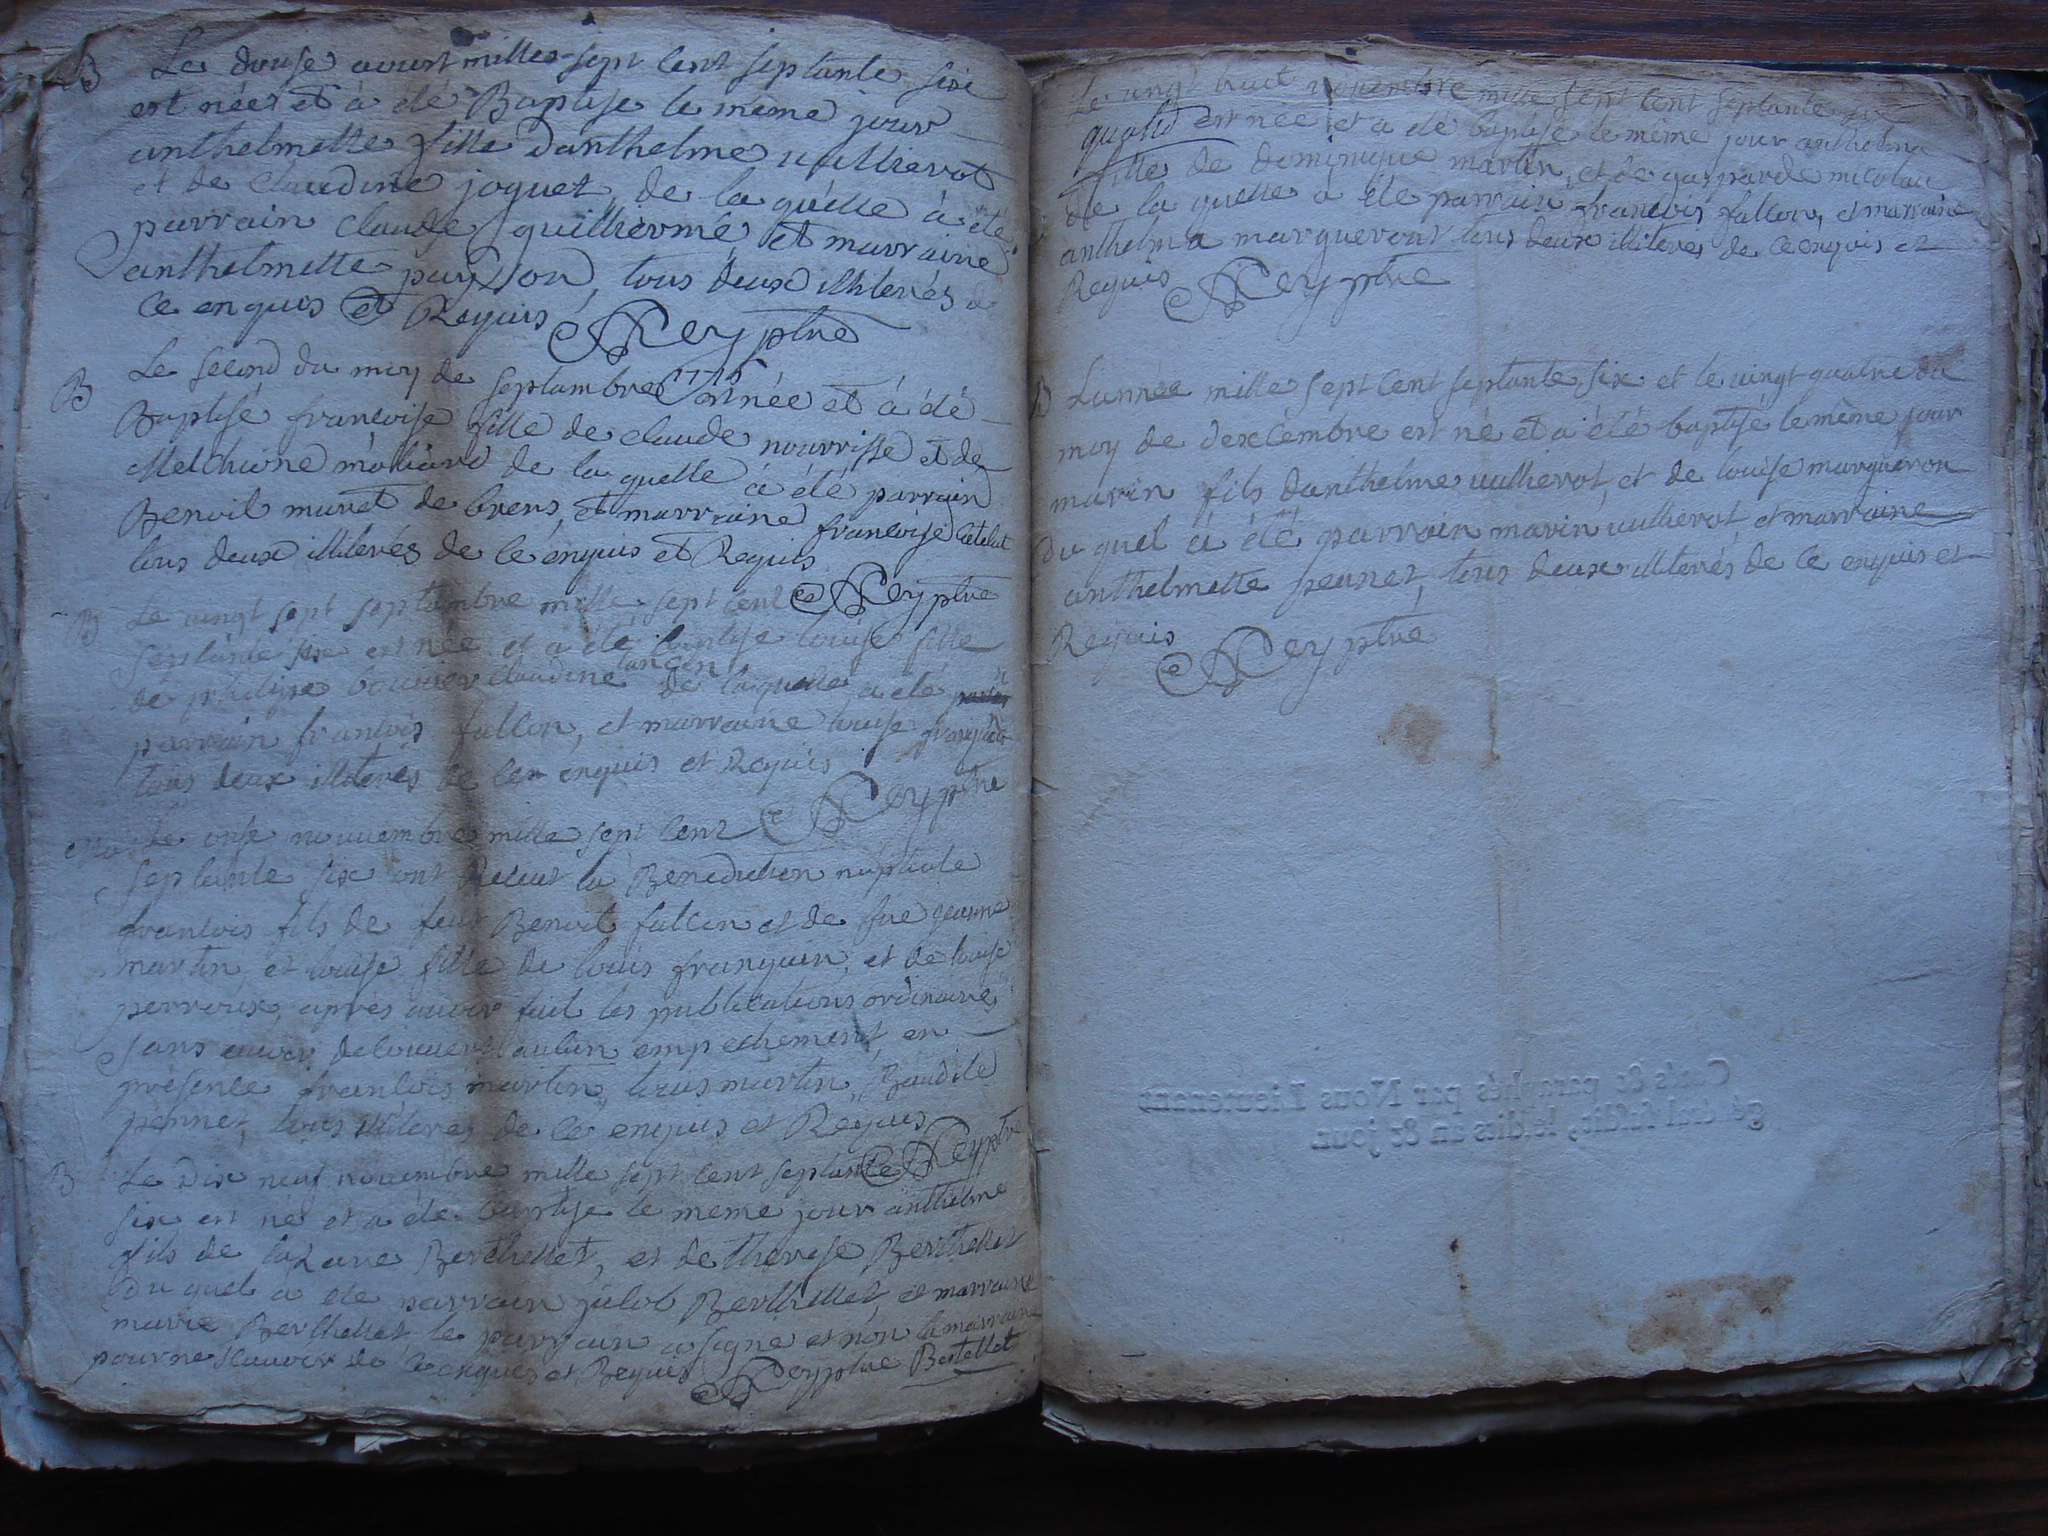 B Le douse aoust milles sept cent septante six
est nées et à été Baptise le même jour
anthelmette fille d'anthelme vullierot
et de claudine joguet, de la quelle à été
parrain claude guillermé, et marraine
anthelmette payson, tous deux illiterés de
ce enquis et Requis Rey ptre
B Le second du moy de septambre 1776 est née et à été
Baptisé francoise fille de claude nourrisse et de
Melchione moliard de la quelle à été parrain
Benoit muret de brens, et marraine francoise
tous deux illiterés de ce enquis et Requis
Rey ptre
B Le vingt sept septambre mille sept cent
septante six est née et a été baptise louise fille
de philipe bouvier claudine de laquelle a été
parrain francois fallon, et marraine louise franquin
tous deux illiterés de ce enquis et Requis
Rey ptre
Le onse nouuembre mille sept cent
septante six ont Receut la Benediction nuptiale
francois fils de feu Benoit fallon et de fue jeanne
martin et louise fille de louis franquin, et de louise
perroux, apres auoir fait les publications ordinaires
sans auoir decouuert aucun empechement, en
présence francois martin, louis martin, Baudile
pennet, tous illiteres de ce enquis et Requis
Rey ptre
B Le dix neuf nouembre mille sept cent septante
six est né et a été baptise le meme jour anthelme
fils de lazare Berthellet, et de therese Berthellet
du quel à été parrain jacob Berthellet, et marraine
marie Berthellet, le parrain a signe et non la marraine
pour ne scauoir de ce enquis et Requis Rey ptre Bertellet
Le vingt huit nouembre mille sept cent septante six
est née et a été baptise le même jour anthelma
fille de dominique martin, et de gasparde micolau
de la quelle à été parrain francois fallon, et marraine
anthelma margueront tous deux illiteres de ce enquis et
Requis Rey ptre
B L'année mille sept cent septante six et le vingt quatre du
moy de dexcembre est né et a été baptisé le même jour
marin fils danthelme vullierot, et de louise margueron
du quel à été parrain marin vullierot, et marraine
anthelmette peunet, tous deux illiterés de ce enquis et
Requis Rey ptre
Cotés & paraphés par Nous Lieutenant
général susdit, lesdits an & jour.